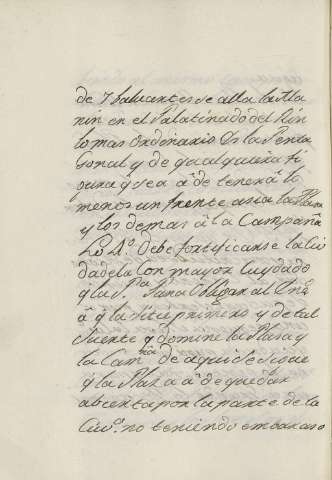 de 7 baluartes se alla la Ma
nin en el Palatinado del Rin
lo mas ordinario es la Penta
gonal y de qualquiera fi
gura q sea a de tener a lo
menos un frente asia la Plaza
y los demas a la Campaña
Lo 4º debe fortificarse la ciu
dadela con mayor cuydado
q la Pza para obligar al Enº
a q la sitie primero y de tal
suerte q domine la Plasa y
la Campña de aqui se sigue
q la Plaza a de quedar
abierta por la parte de la
Ciudª no teniendo embaraso